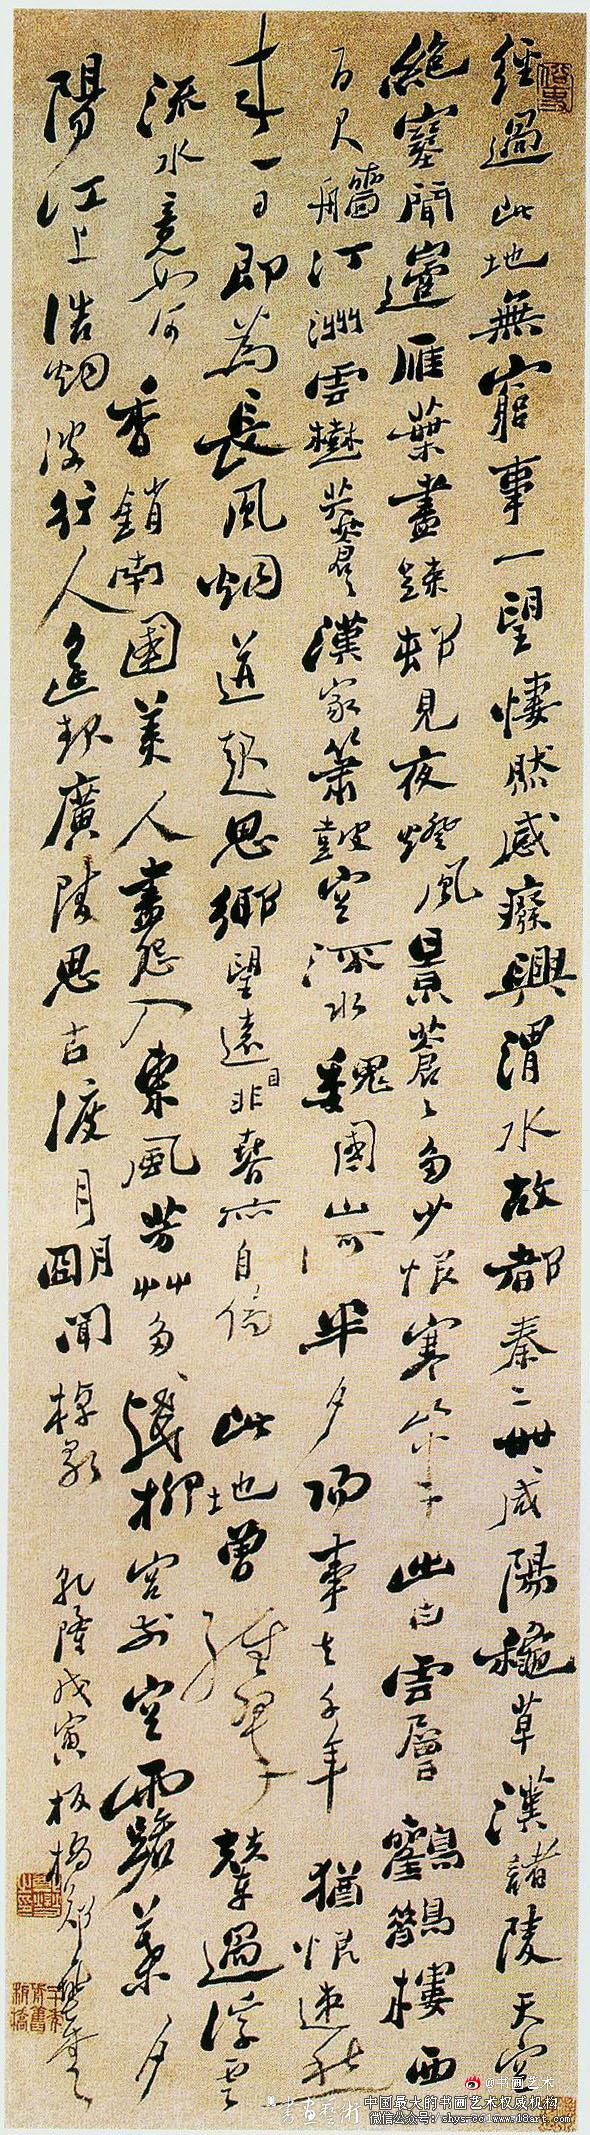 經過此地無窮事一望悽然感廢興渭水故都秦二世咸陽穐草漢諸陵天空
絕塞聞邊雁葉盡疎邨見夜燈風景蒼〻多少恨寒山半出白雲層 鸛鵲樓西
百尺檣汀洲雲樹共蒼〻漢家簫鼓空流水魏國山河半夕陽事去千年猶恨速愁
來一日即為長風烟並起思鄉望遠目非春亦自傷 此地曾經翠輦過浮雲
流水竟如何香銷南國美人盡怨入東風芳草多殘柳宮前空露葉夕
陽江上浩烟波行人遙起廣陵思古渡月明聞棹歌 乾隆戊寅板橋鄭燮書
@书画艺术
中国最大的书画艺术权威机构